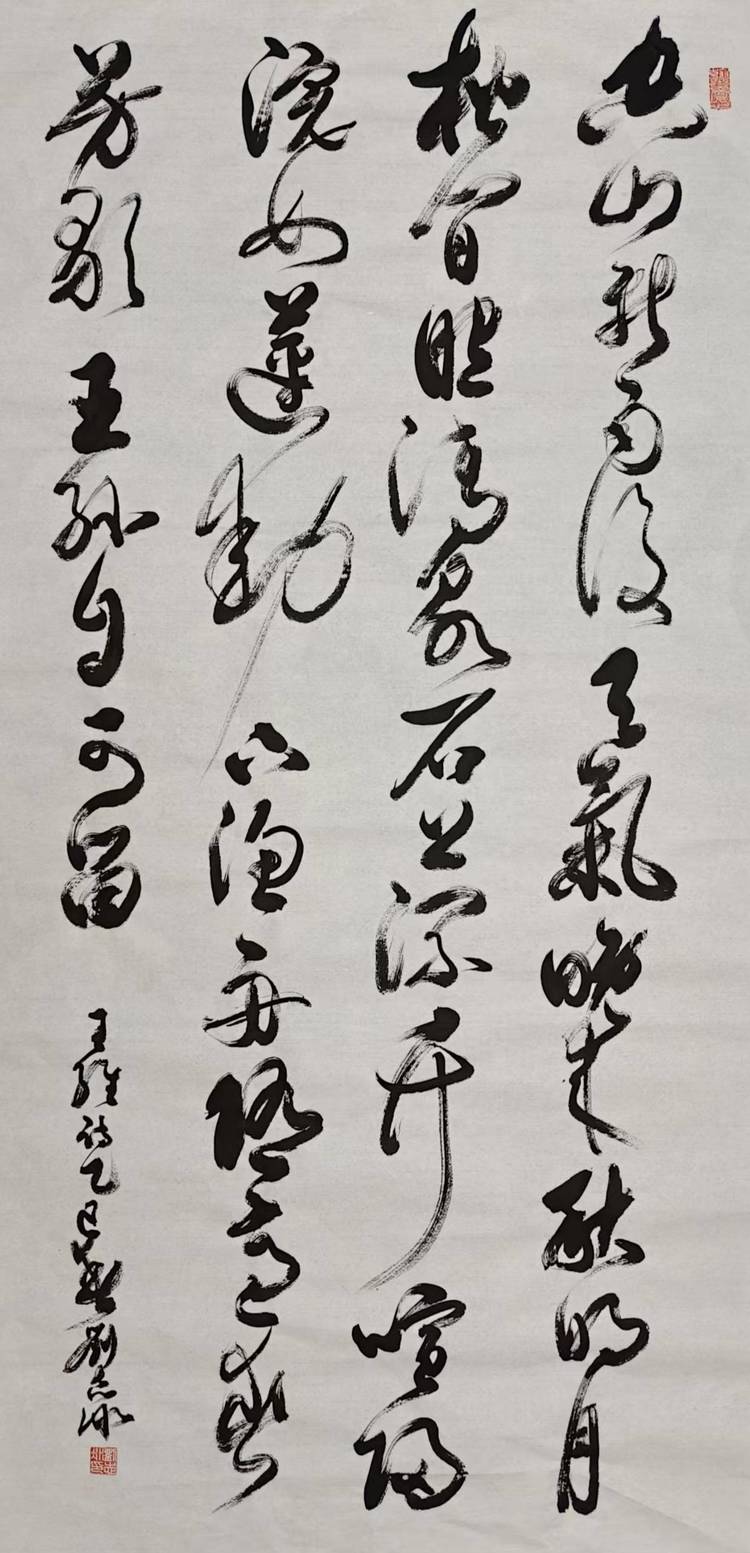 空山新雨後天氣晚來秋明月
松間照清泉石上流竹喧歸
浣女蓮動下漁舟隨意春
芳歇王孫自可留
王維詩乙巳劉志